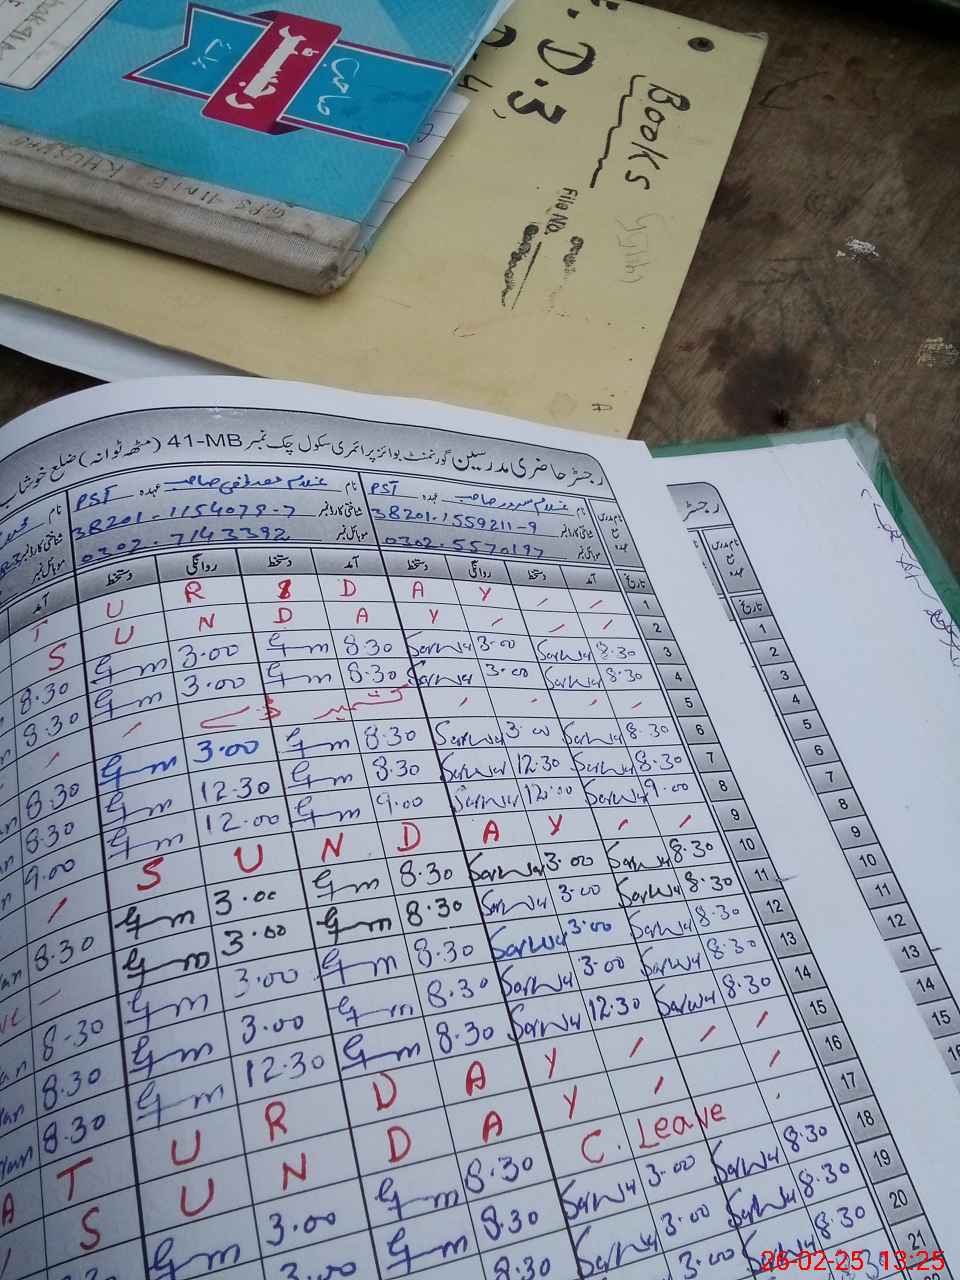 حاضری
رجسٹر
GPS 41MB KHUSHAB
D.3
Books
File No.
رجسٹر حاضری مدرسین گورنمنٹ بوائز پرائمری سکول چک نمبر 41-MB (مٹھہ ٹوانہ) ضلع خوشاب
نام غلام سرور صاحب عہدہ PST نام غلام مصطفی صاحب عہدہ PST
شناختی کارڈ نمبر 38201-1559211-9 شناختی کارڈ نمبر 38201-1154079-7 شناختی کارڈ نمبر
موبائل نمبر 0302-5570197 موبائل نمبر 0302-7143392 موبائل نمبر
نام مدرسین مع عہدہ
تاریخ آمد دستخط روانگی دستخط آمد دستخط روانگی دستخط آمد
T U R D A Y - - 1
S U N D A Y - - 2
8.30 Gm 3.00 Gm 8.30 Sarwar 3.00 Sarwar 8.30 3
8.30 Gm 3.00 Gm 8.30 Sarwar 3.00 Sarwar 8.30 4
کشمیر ڈے 5
8.30 Gm 3.00 Gm 8.30 Sarwar 3.00 Sarwar 8.30 6
8.30 Gm 12.30 Gm 8.30 Sarwar 12.30 Sarwar 8.30 7
9.00 Gm 12.00 Gm 9.00 Sarwar 12.00 Sarwar 9.00 8
S U N D A Y 9
8.30 Gm 3.00 Gm 8.30 Sarwar 3.00 Sarwar 8.30 10
Gm 3.00 Gm 8.30 Sarwar 3.00 Sarwar 8.30 11
8.30 Gm 3.00 Gm 8.30 Sarwar 3.00 Sarwar 8.30 12
8.30 Gm 3.00 Gm 8.30 Sarwar 3.00 Sarwar 8.30 13
8.30 Gm 12.30 Gm 8.30 Sarwar 12.30 Sarwar 8.30 14
A T U R D A Y 15
S U N D A Y 16
C. Leave 17
Gm 3.00 Gm 8.30 Sarwar 3.00 Sarwar 8.30 18
3.00 Gm 8.30 Sarwar 3.00 Sarwar 8.30 19
8.30 3.00 Sarwar 8.30 20
21
رجسٹر
نام مدرسین مع عہدہ
تاریخ
1
2
3
4
5
6
7
8
9
10
11
12
13
14
15
16
26-02-25 13:25